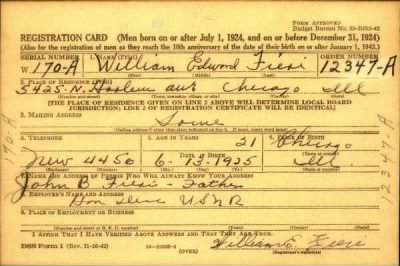 FORM APPROVED
Budget Bureau No. 33-R012-42
REGISTRATION CARD (Men born on or after July 1, 1924, and on or before December 31, 1924)
(Also for the registration of men as they reach the 18th anniversary of the date of their birth on or after January 1, 1943.)
SERIAL NUMBER 1. NAME (Print) ORDER NUMBER
W 170-A William Edward Fieri 12347-A
(First) (Middle) (Last)
2. PLACE OF RESIDENCE (Print)
5425 N. Harlem ave Chicago Ill
(Number and street) (Town, township, village, or city) (County) (State)
[THE PLACE OF RESIDENCE GIVEN ON LINE 2 ABOVE WILL DETERMINE LOCAL BOARD
JURISDICTION; LINE 2 OF REGISTRATION CERTIFICATE WILL BE IDENTICAL]
3. MAILING ADDRESS
Same
4. TELEPHONE 5. AGE IN YEARS 6. PLACE OF BIRTH
21 Chicago
DATE OF BIRTH
New 4450 6-13-1925 Ill.
7. NAME AND ADDRESS OF PERSON WHO WILL ALWAYS KNOW YOUR ADDRESS
John B Fieri - Father
8. EMPLOYER'S NAME AND ADDRESS
USNR
9. PLACE OF EMPLOYMENT OR BUSINESS
(Number and street or R. F. D. number) (Town) (County) (State)
I AFFIRM THAT I HAVE VERIFIED ABOVE ANSWERS AND THAT THEY ARE TRUE.
DSS Form 1 (Rev. 11-16-42) (OVER) William E. Fieri
170-A
12347-A